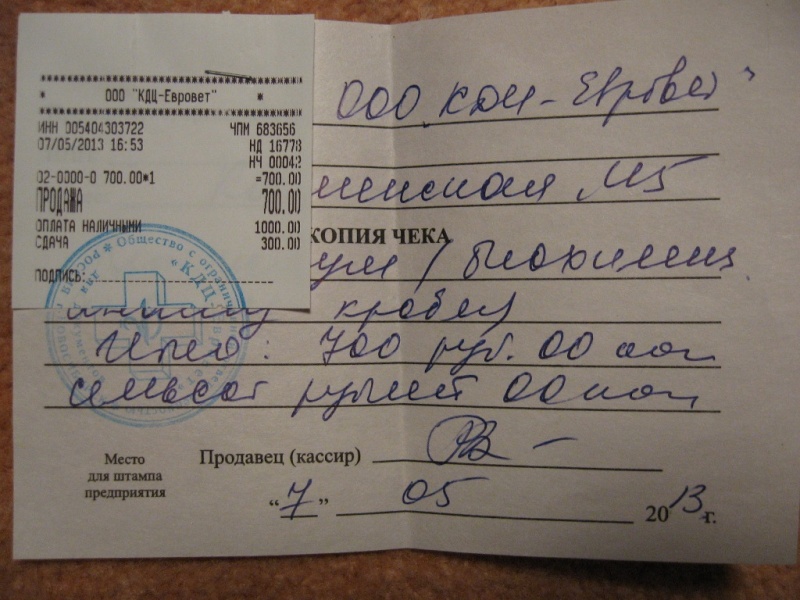 ООО "КДЦ-Евровет"
ИНН 005404303722 ЧПМ 683656
07/05/2013 16:53 НД 16778
НЧ 00042
02-0000-0 700.00*1 =700.00
ПРОДАЖА 700.00
ОПЛАТА НАЛИЧНЫМИ 1000.00
СДАЧА 300.00
ПОДПИСЬ:
ООО "КДЦ-Евровет"
М5
КОПИЯ ЧЕКА
крови
Итого: 700 руб. 00 коп
семьсот рублей 00 коп
Место для штампа предприятия
Продавец (кассир)
"7" 05 2013 г.
Общество с ограниченной
"КДЦ-Евровет"